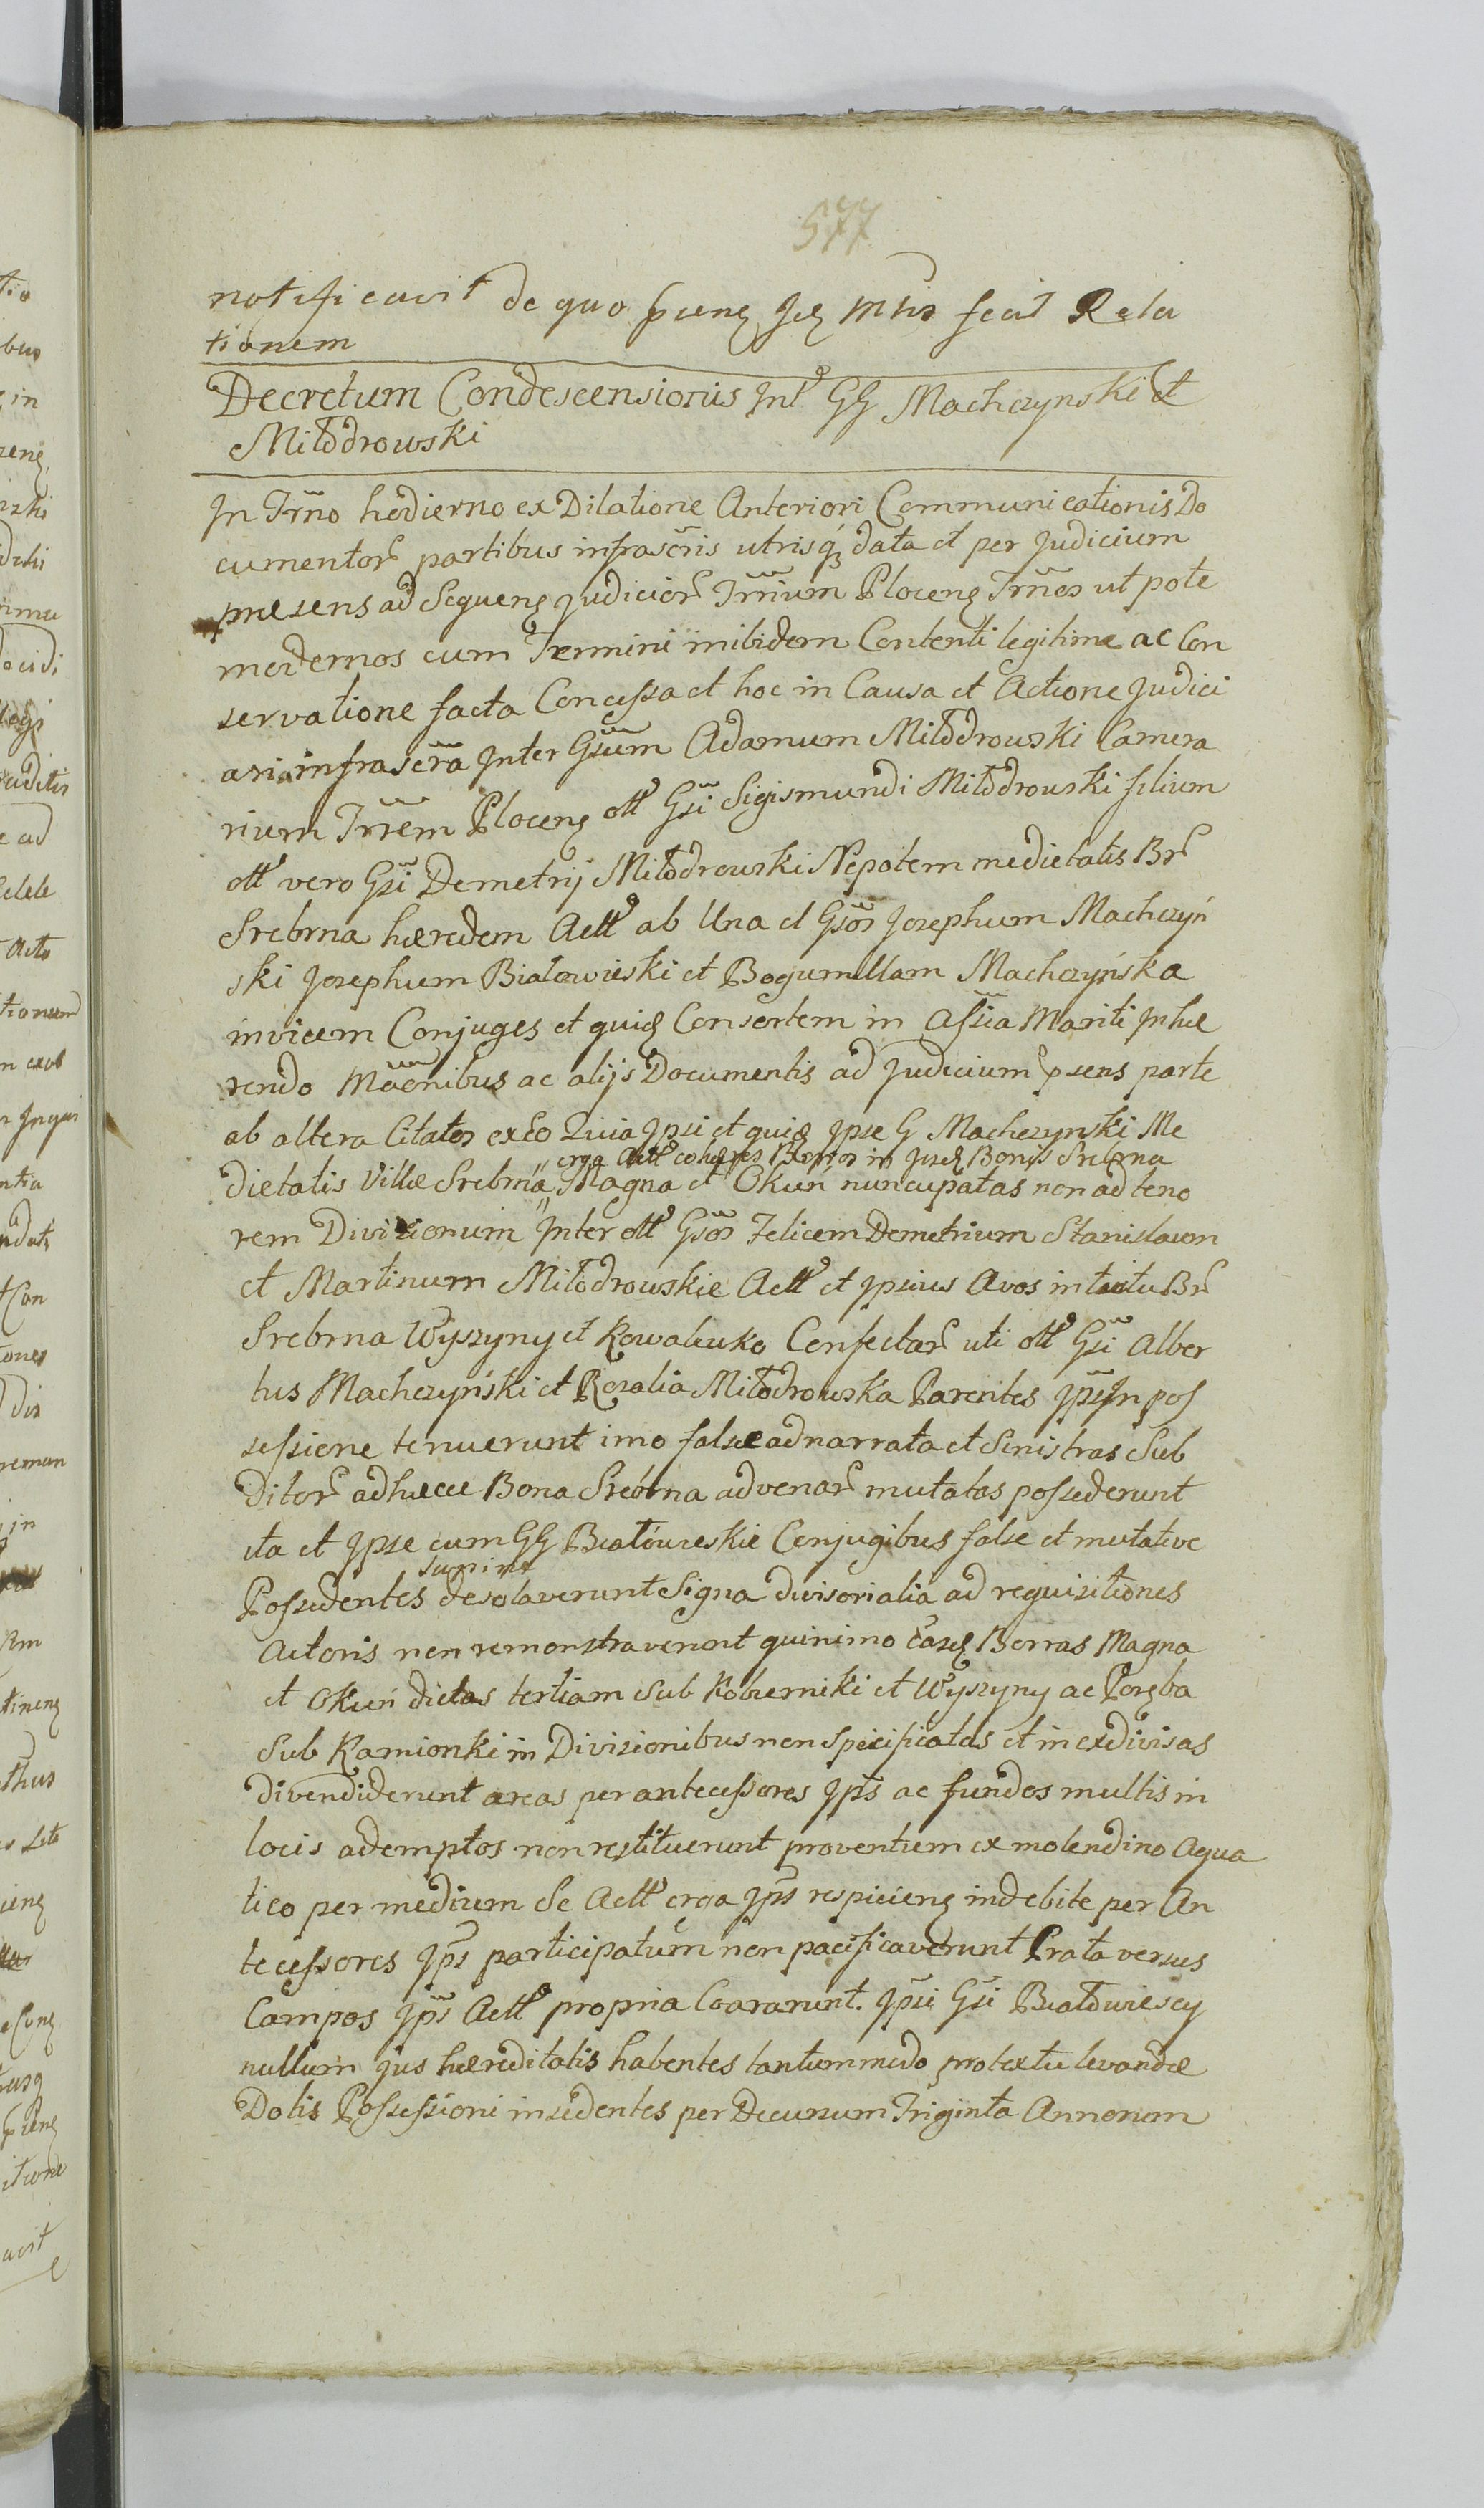 577
notificavit de quo pscens Jdem Mtis fecit Rela
tionem
Decretum Condescensionis Intr GG Machczynski et
Miłodrowski
In Trno hodierno ex Dilatione Anteriori Communicationis Do
cumentor partibus infrascris utrisq data et per Judicium
præsens ad Sequens Judicior Trrium Plocens Trnos ut pote
modernos cum Termini inibidem Contenti legitime ac Con
servatione facta Concessa et hoc in Causa et Actione Judici
aria infrascra Inter Gsum Adamum Miłodrowski Camera
rium Trrem Plocens olł Gsi Sigismundi Miłodrowski filium
olł vero Gsi Demetrij Miłodrowski Nepotem medietatis Br
Srebrna hæredem Actł ab Una et Gsos Josephum Machczyń
ski Josephum Białowieski et Bogumillam Machczyńska
invicem Conjuges et quid Consortem in Assia Mariti Inhæ
rendo Mũonibus ac alijs Documentis ad Judicium psens parte
ab altera Citatos ex eo Quia Ipsi et quid ipse G Machczynski Me
erga Actł cohæres Borros in Jisd Bonis Srebrna
dietatis Villæ Srebrna Magna et Okuń nuncupatas non ad teno
rem Divisionum Inter olł Gsos Felicem Demetrium Stanislaum
et Martinum Miłodrowskie Actł et ipsius Avos intuitu Br
Srebrna Wyszyny et Kowalewko Confectar uti olł Gsi Alber
tus Machczyński et Rozalia Miłodrowska Parentes Ipsi In pos
sessione tenuerunt imo false adnarrata et Sinistras Sub
ditor adhæce Bona Srebrna advenar mutatas possederunt
ita et Ipse cum GG Białowieskie Conjugibus false et mutative
sumime
Possidentes desolaverunt Signa divisorialia ad requisitiones
Actoris non remonstraverunt quinimo easd Borras Magna
et Okuń dictas tertiam Sub Kobierniki et Wyszyny ac Poręba
Sub Kamionki in Divisionibus non Specificatas et in exdivisas
divendiderunt areas per antecessores Ips ac fundos multis in
locis ademptos non restituerunt proventum ex molendino Aqua
tico per medium Se Actł erga Ips respiciens indebite per An
tecessores Ips participatum non pacificaverunt Prata versus
Campos Ips Actł propria Coararunt. Ipsi Gsi Białowiescy
nullum jus hæreditatis habentes tantummodo protextu levandæ
Dotis Possessioni insidentes per Decursum Triginta Annorum